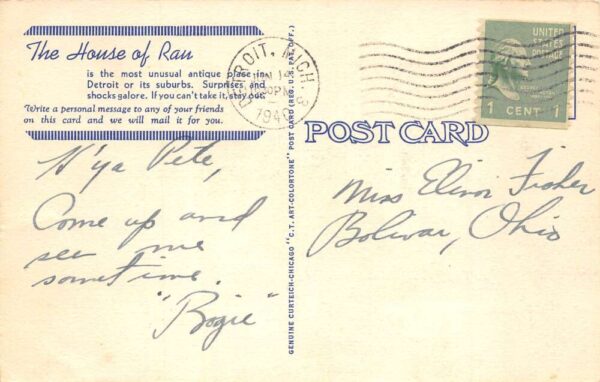 The House of Rau
is the most unusual antique place in
Detroit or its suburbs. Surprises and
shocks galore. If you can't take it, stay out.
Write a personal message to any of your friends
on this card and we will mail it for you.
H'ya Pete,
Come up and
see me
sometime.
"Bogie"
GENUINE CURTEICH-CHICAGO "C.T. ART-COLORTONE" POST CARD (REG. U.S. PAT. OFF.)
DETROIT, MICH.
POST CARD
UNITED
STATES
POSTAGE
1 CENT 1
Miss Elinor Fisher
Bolivar, Ohio